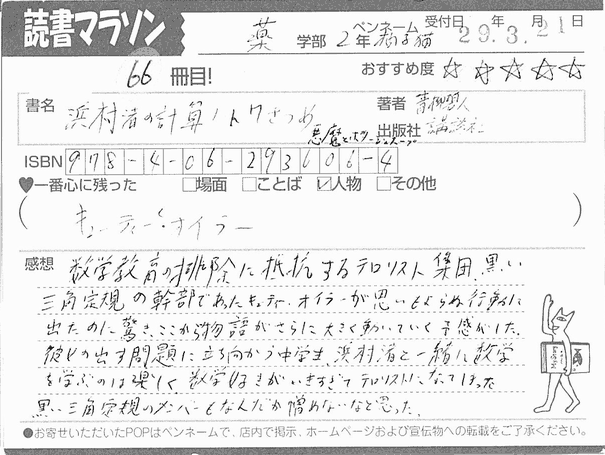 読書マラソン
薬 学部 2年 ペンネーム 猫 受付日 29年 3.月 21日
66 冊目! おすすめ度 ☆☆☆☆☆
書名 浜村渚の計算ノート 7さつめ 悪魔とポタージュスープ
著者 青柳碧人
出版社 講談社
ISBN 978-4-06-293606-4
♥一番心に残った □場面 □ことば ☑人物 □その他
(キューティー・オイラー)
感想 数学教育の排除に抵抗するテロリスト集団、黒い
三角定規の幹部であったキューティー・オイラーが思いもよらぬ行動に
出たのに驚き、ここから物語がさらに大きく動いていく予感がした。
彼らの出す問題に立ち向かう中学生、浜村渚と一緒に数学
を学ぶのは楽しく、数学好きがいきすぎてテロリストになってしまった
黒い三角定規のメンバーもなんだか憎めないなと思った。
●お寄せいただいたPOPはペンネームで、店内で掲示、ホームページおよび宣伝物への転載をご了承ください。